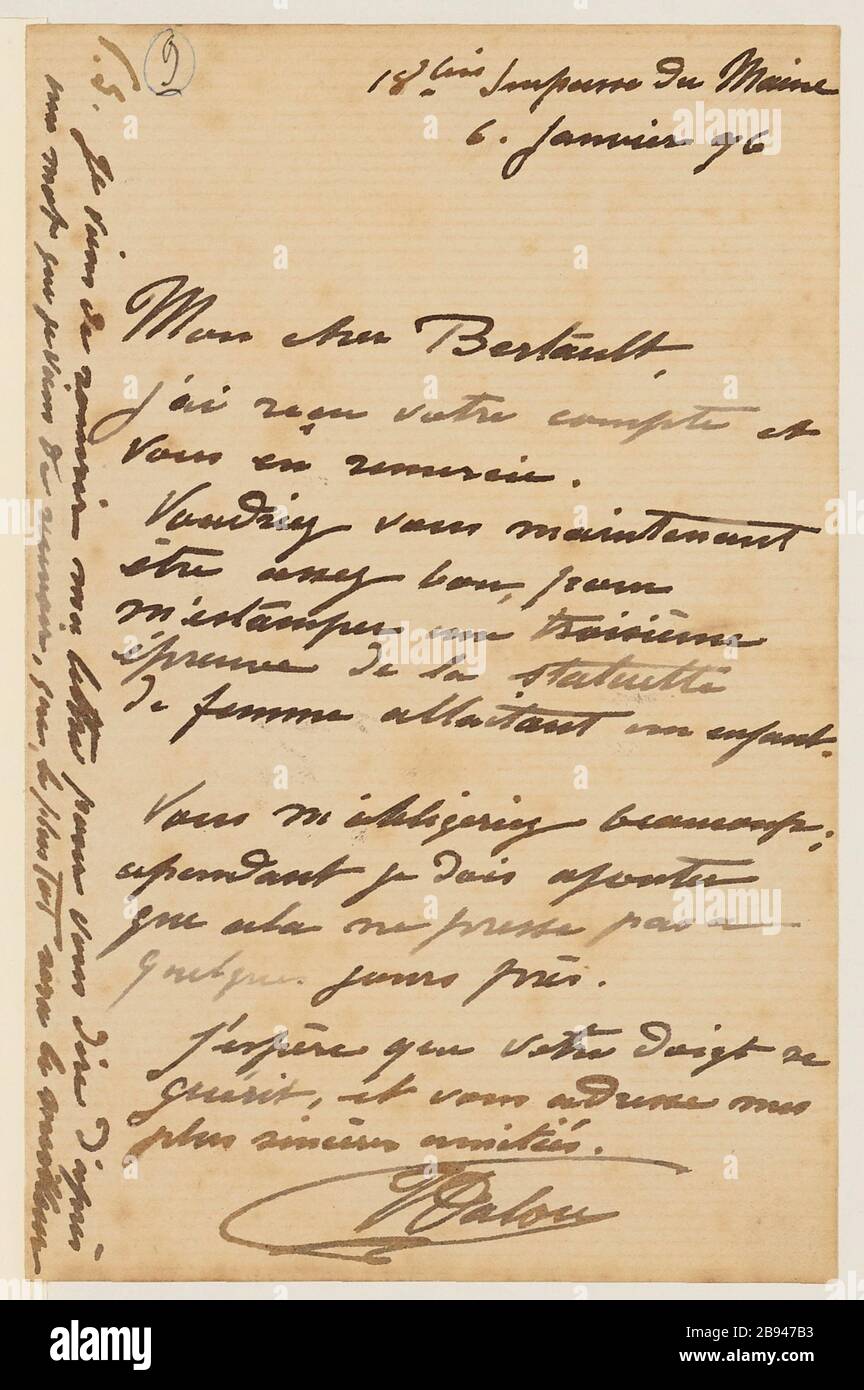 9
18 bis Impasse du Maine
6. Janvier 96
Mon cher Bertault,
J'ai reçu votre compte et
vous en remercie.
Voudriez vous maintenant
être assez bon, pour
m'estamper une troisième
épreuve de la statuette
de femme allaitant un enfant.
Vous m'obligeriez beaucoup;
cependant je dois ajouter
que cela ne presse pas a
quelques jours près.
J'espère que votre doigt se
guérit, et vous adresse mes
plus sincères amitiés.
J Dalou
P.S. Je viens de rouvrir ma lettre pour vous dire d'après
un mot que je viens de recevoir, que, le plus tôt sera le meilleur
alamy
Image ID: 2B947B3
www.alamy.com